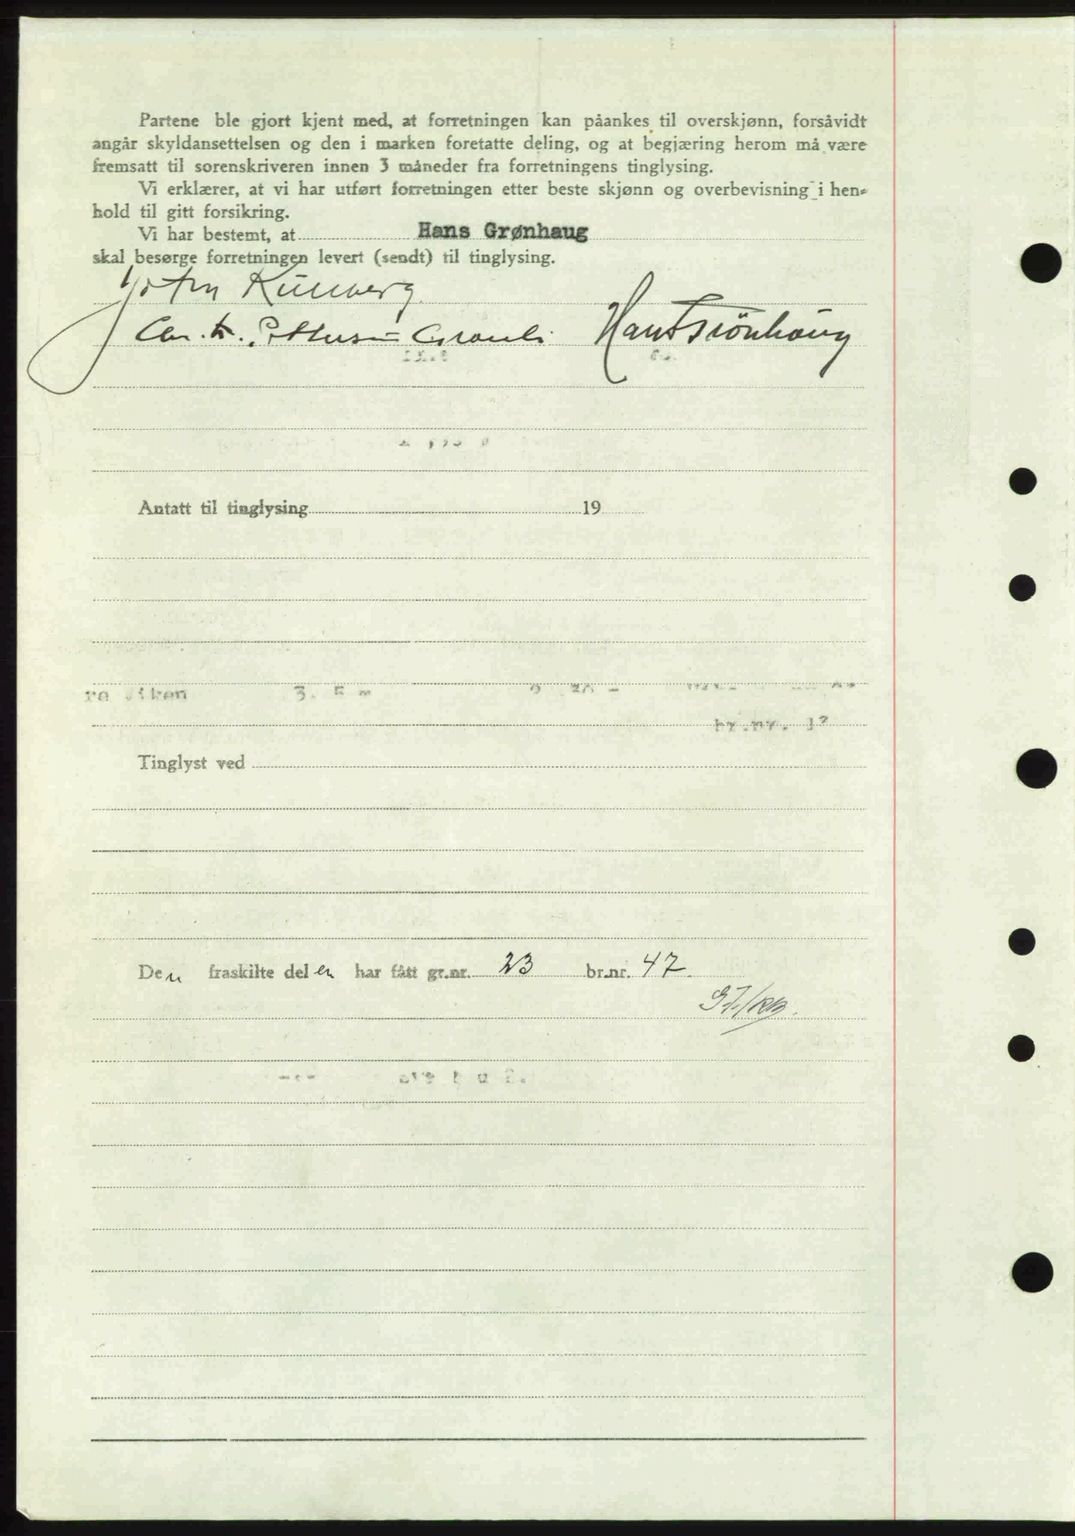 Partene ble gjort kjent med, at forretningen kan påankes til overskjønn, forsåvidt
angår skyldansettelsen og den i marken foretatte deling, og at begjæring herom må være
fremsatt til sorenskriveren innen 3 måneder fra forretningens tinglysing.
Vi erklærer, at vi har utført forretningen etter beste skjønn og overbevisning i hen-
hold til gitt forsikring.
Vi har bestemt, at Hans Grønhaug
skal besørge forretningen levert (sendt) til tinglysing.
Hans Grönhaug
Antatt til tinglysing 19
br.nr. 1
Tinglyst ved
Den fraskilte delen har fått gr.nr. 23 br.nr. 47